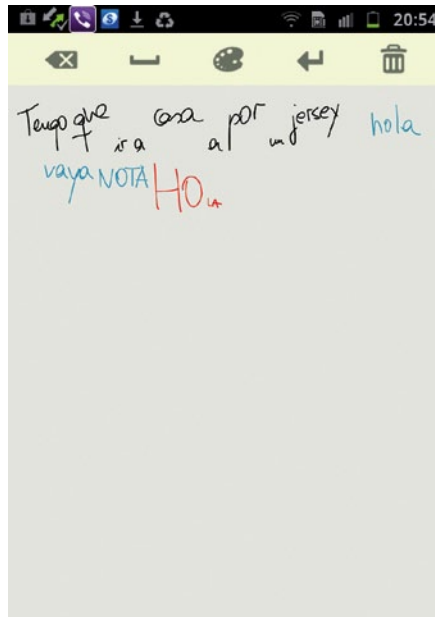 20:54
Tengo que ir a casa a por un jersey hola
vaya NOTA HOLA